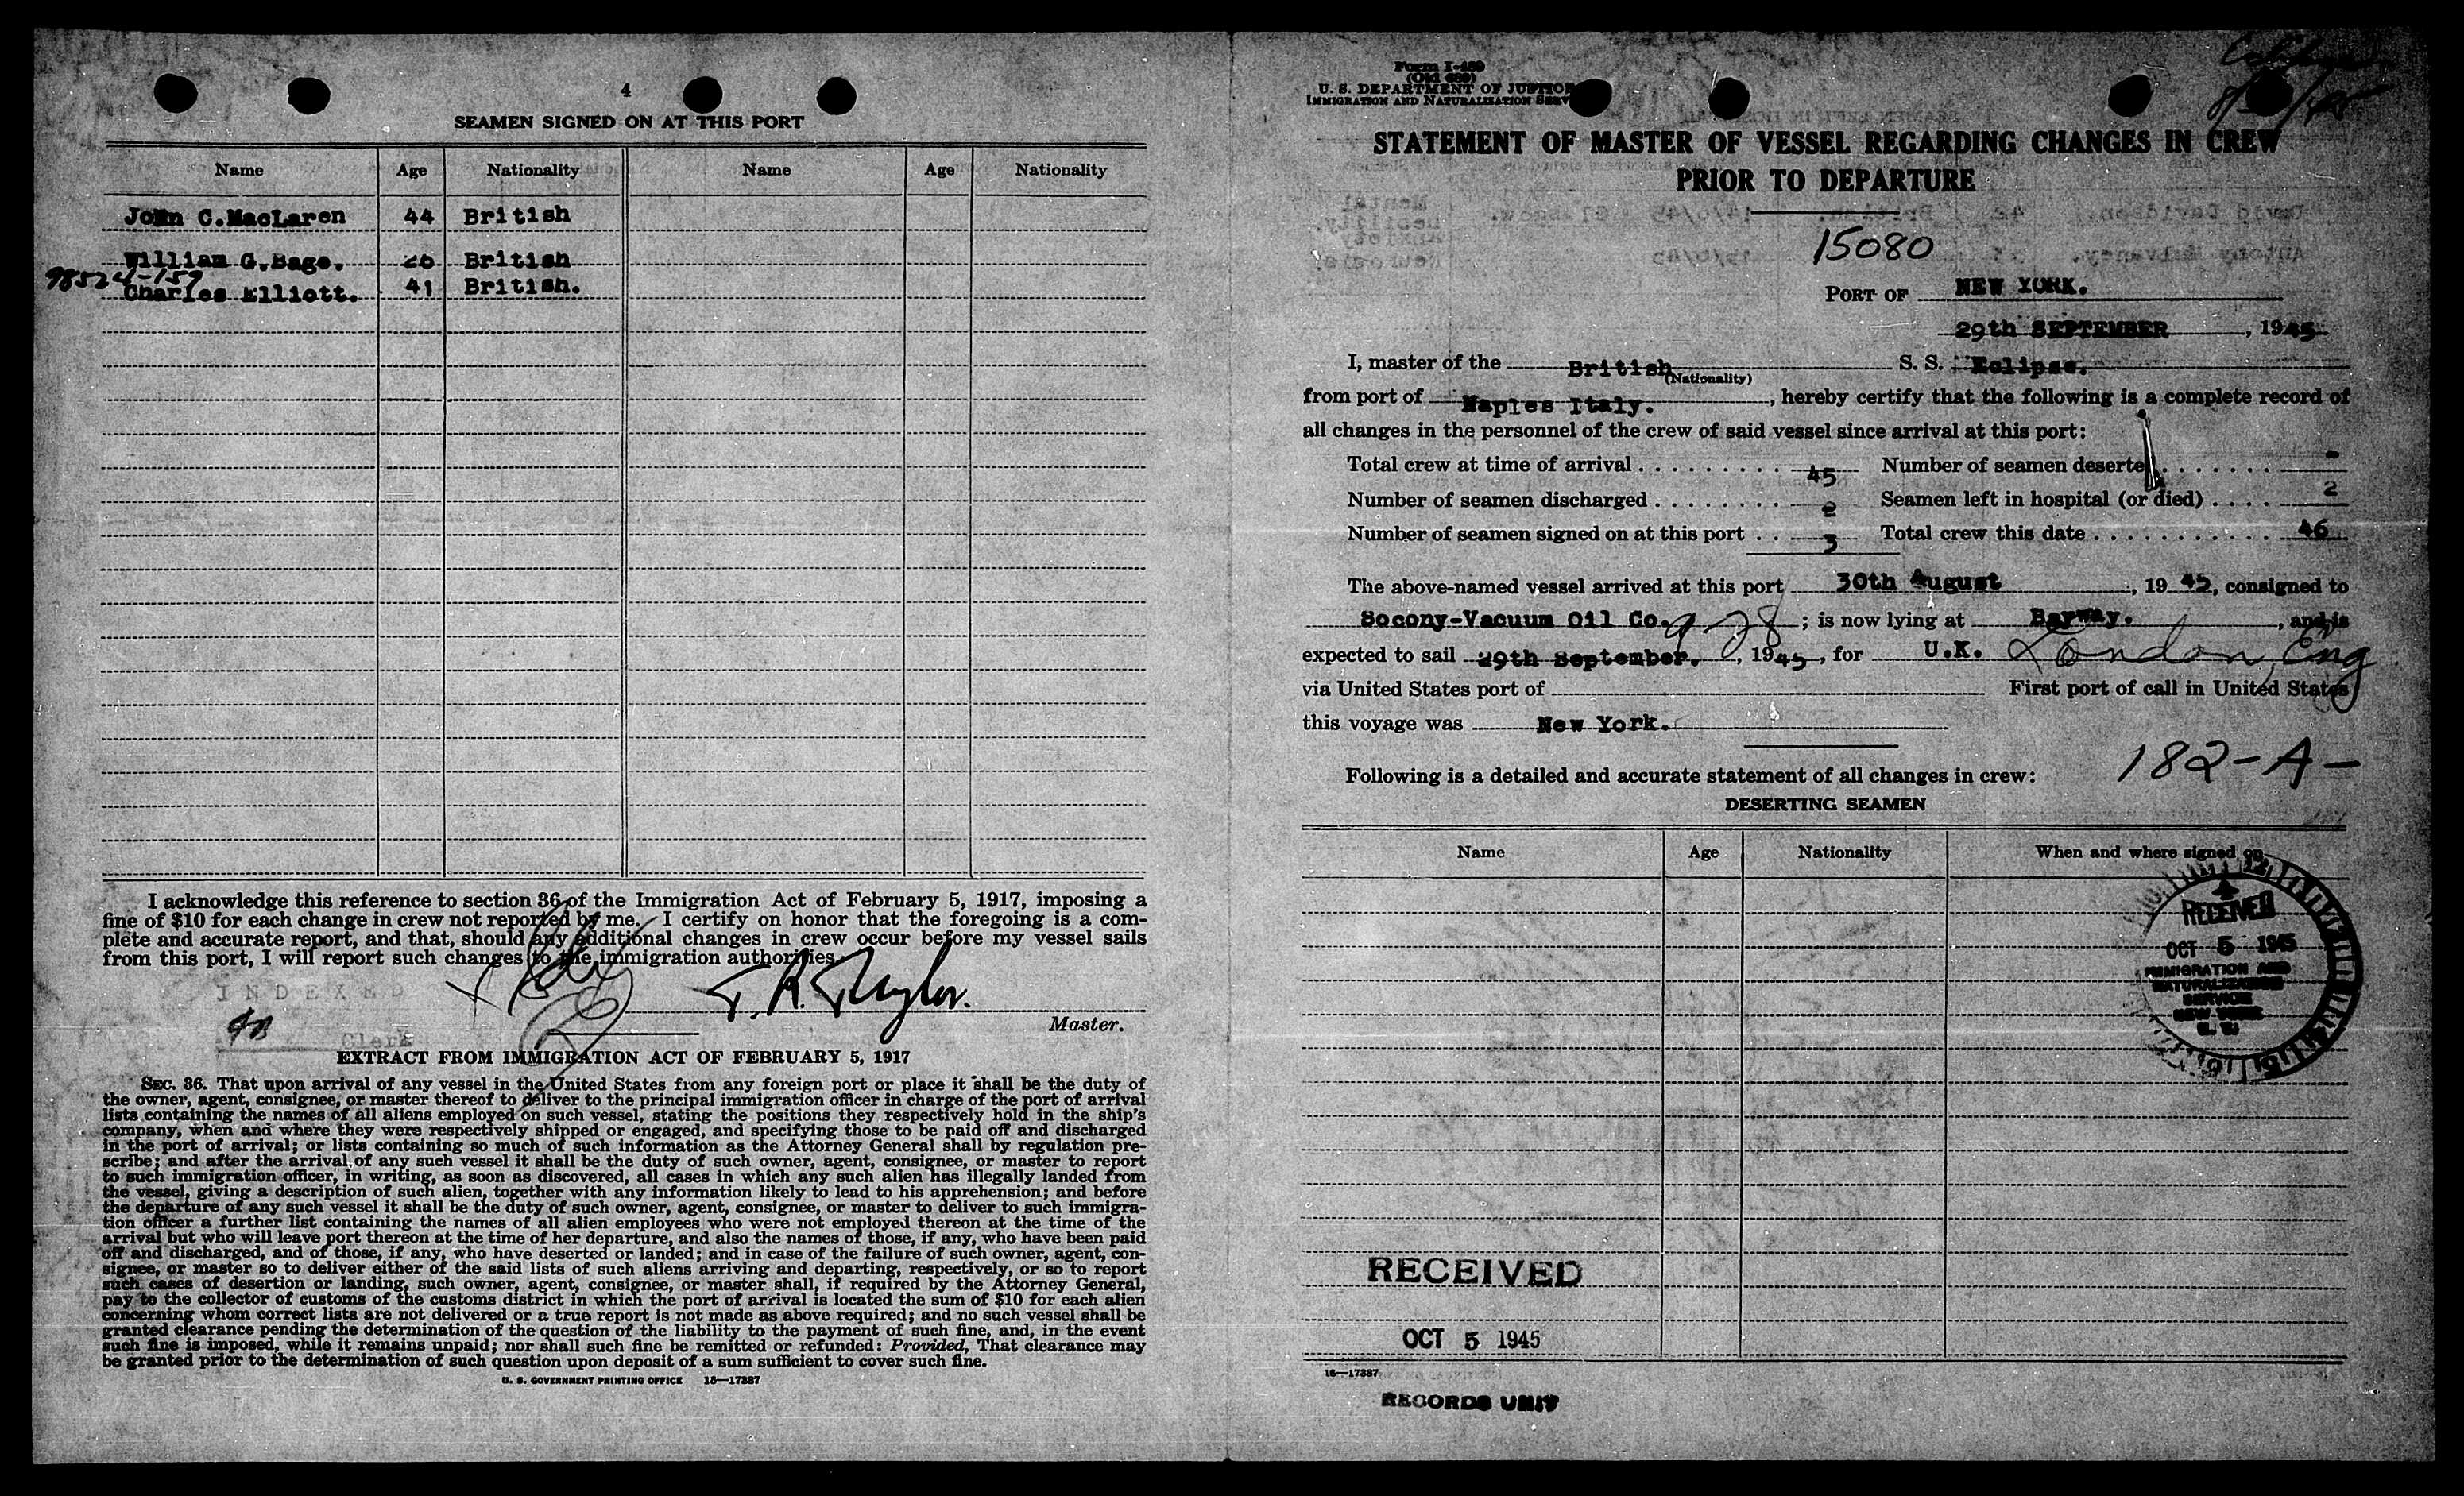 4
SEAMEN SIGNED ON AT THIS PORT
Name Age Nationality Name Age Nationality
John C.MacLaren 44 British
William G.Sage. British
98524-159
Charles Elliott. 41 British.
I acknowledge this reference to section 36 of the Immigration Act of February 5, 1917, imposing a
fine of $10 for each change in crew not reported by me. I certify on honor that the foregoing is a com-
plete and accurate report, and that, should any additional changes in crew occur before my vessel sails
from this port, I will report such changes to the immigration authorities.
INDEXED
T. R. Taylor.
Master.
Clerk
EXTRACT FROM IMMIGRATION ACT OF FEBRUARY 5, 1917
SEC. 36. That upon arrival of any vessel in the United States from any foreign port or place it shall be the duty of
the owner, agent, consignee, or master thereof to deliver to the principal immigration officer in charge of the port of arrival
lists containing the names of all aliens employed on such vessel, stating the positions they respectively hold in the ship's
company, when and where they were respectively shipped or engaged, and specifying those to be paid off and discharged
in the port of arrival; or lists containing so much of such information as the Attorney General shall by regulation pre-
scribe; and after the arrival of any such vessel it shall be the duty of such owner, agent, consignee, or master to report
to such immigration officer, in writing, as soon as discovered, all cases in which any such alien has illegally landed from
the vessel, giving a description of such alien, together with any information likely to lead to his apprehension; and before
the departure of any such vessel it shall be the duty of such owner, agent, consignee, or master to deliver to such immigra-
tion officer a further list containing the names of all alien employees who were not employed thereon at the time of the
arrival but who will leave port thereon at the time of her departure, and also the names of those, if any, who have been paid
off and discharged, and of those, if any, who have deserted or landed; and in case of the failure of such owner, agent, con-
signee, or master so to deliver either of the said lists of such aliens arriving and departing, respectively, or so to report
such cases of desertion or landing, such owner, agent, consignee, or master shall, if required by the Attorney General,
pay to the collector of customs of the customs district in which the port of arrival is located the sum of $10 for each alien
concerning whom correct lists are not delivered or a true report is not made as above required; and no such vessel shall be
granted clearance pending the determination of the question of the liability to the payment of such fine, and, in the event
such fine is imposed, while it remains unpaid; nor shall such fine be remitted or refunded: Provided, That clearance may
be granted prior to the determination of such question upon deposit of a sum sufficient to cover such fine.
U. S. GOVERNMENT PRINTING OFFICE 16—17387
Form I-489
(Old 689)
U. S. DEPARTMENT OF JUSTICE
IMMIGRATION AND NATURALIZATION SERV
STATEMENT OF MASTER OF VESSEL REGARDING CHANGES IN CREW
PRIOR TO DEPARTURE
15080
PORT OF NEW YORK.
29th SEPTEMBER, 1945
I, master of the British S. S. "Eclipse.
(Nationality)
from port of Naples Italy., hereby certify that the following is a complete record of
all changes in the personnel of the crew of said vessel since arrival at this port:
Total crew at time of arrival 45 Number of seamen deserted -
Number of seamen discharged 2 Seamen left in hospital (or died) 2
Number of seamen signed on at this port 3 Total crew this date 46
The above-named vessel arrived at this port 30th August, 1945, consigned to
Socony-Vacuum Oil Co. 9-28; is now lying at Bayway., and is
expected to sail 29th September., 1945, for U.K. London, Eng
via United States port of First port of call in United States
this voyage was New York.
182-A-
Following is a detailed and accurate statement of all changes in crew:
DESERTING SEAMEN
Name Age Nationality When and where signed on
RECEIVED
OCT 5 1945
IMMIGRATION AND
NATURALIZATION
SERVICE
NEW YORK
RECEIVED
OCT 5 1945
16—17387
RECORDS UNIT